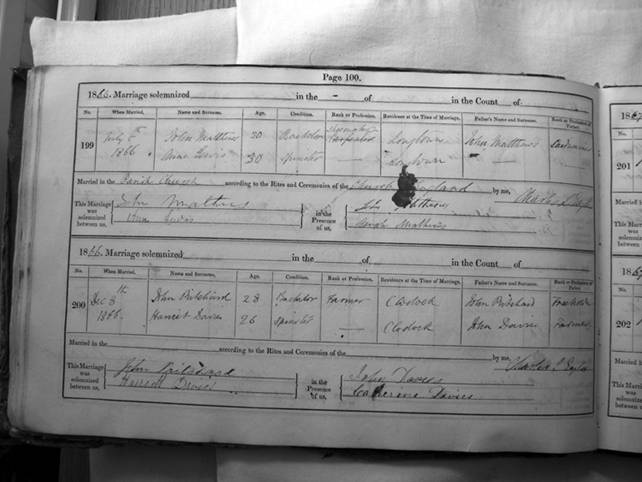 Page 100.
1866. Marriage solemnized in the - of in the Count of
No. When Married. Name and Surname. Age. Condition. Rank or Profession. Residence at the Time of Marriage. Father's Name and Surname. Rank or Profession of Father.
199 July 1866 John Matthews 20 Bachelor Carpenter Longtown John Matthews
Anne Lewis 30 Spinster — Longtown —
Married in the Parish Church according to the Rites and Ceremonies of the Church England by me,
This Marriage was solemnized between us, John Mathews Ann Lewis in the Presence of us, Mathews
Mathews
1866. Marriage solemnized in the of in the Count of
No. When Married. Name and Surname. Age. Condition. Rank or Profession. Residence at the Time of Marriage. Father's Name and Surname. Rank or Profession of Father.
200 Dec 8th 1866. John Pritchard 28 Bachelor Farmer Clodock John Pritchard
Harriet Davies 26 Spinster — Clodock John Davies Farmer
Married in the according to the Rites and Ceremonies of the by me,
This Marriage was solemnized between us, John Pritchard Harriett Davies in the Presence of us, John Davies Catherine Davies
1867
No.
201
Married
This Marriage was solemnized between us,
186
No.
202
Married in
This Marriage was solemnized between us,